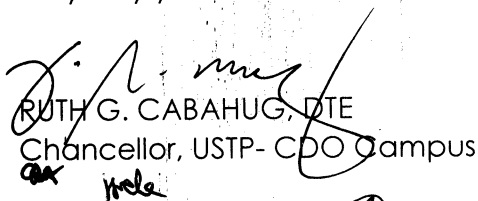 RUTH G. CABAHUG, DTE
Chancellor, USTP- CDO Campus